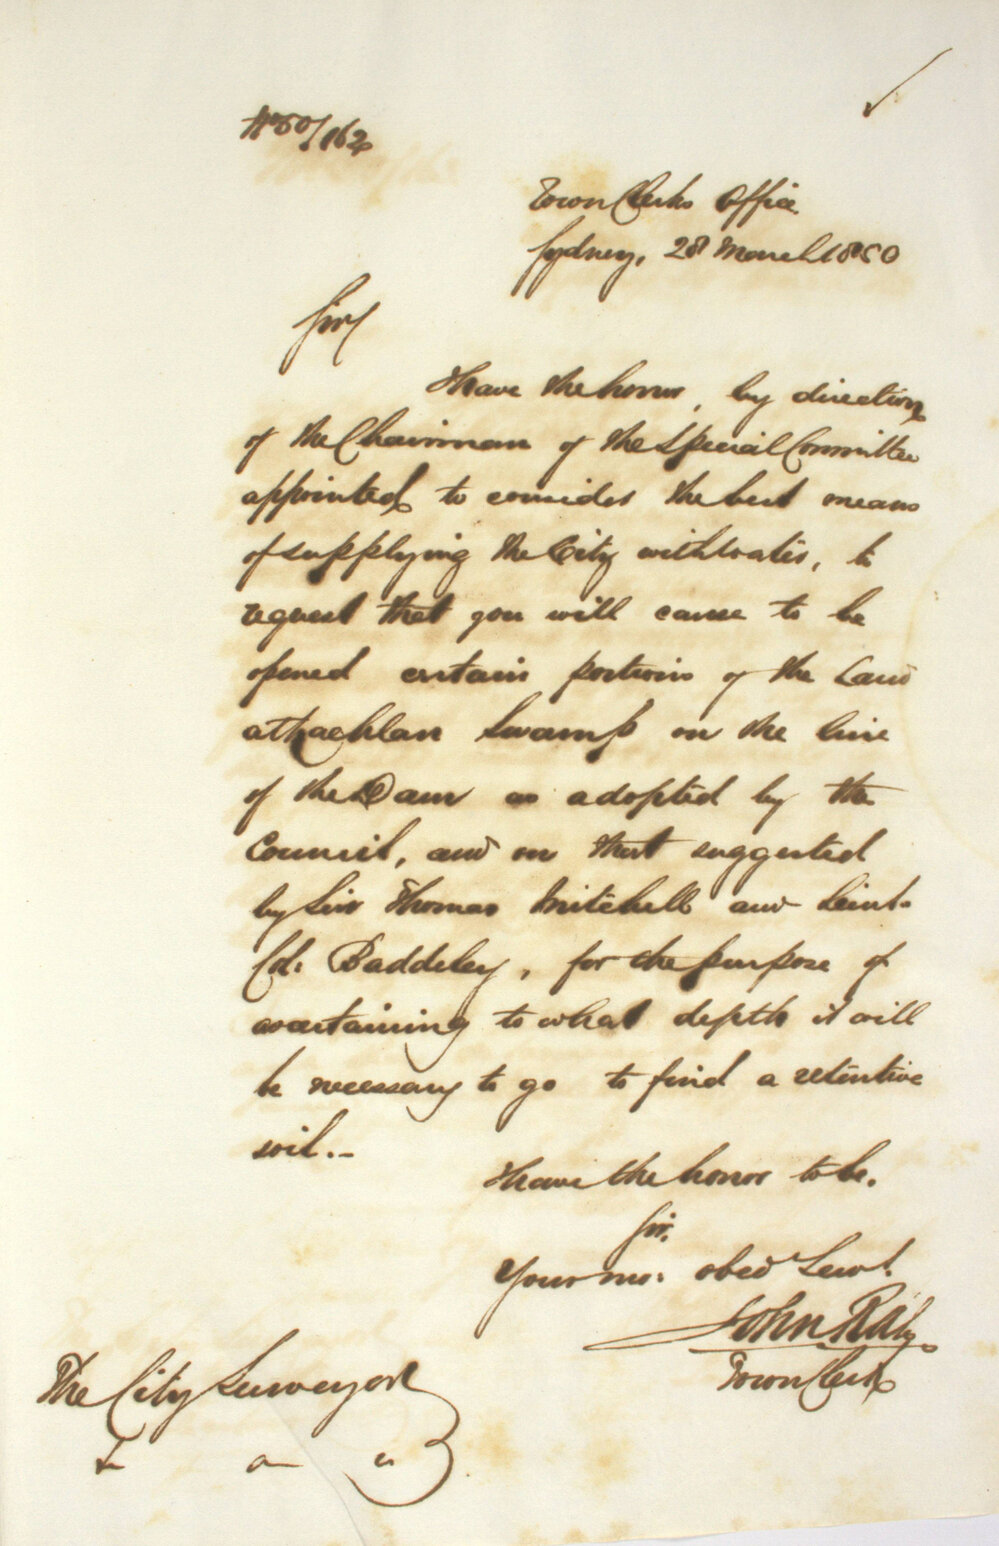 No 50/162
Town Clerks Office
Sydney, 28 March 1850
Sir/
I have the honor, by direction
of the Chairman of the Special Committee
appointed to consider the best means
of supplying the City with Water, to
request that you will cause to be
opened certain portions of the Land
at Lachlan Swamp on the line
of the Dam as adopted by the
Council, and on that suggested
by Sir Thomas Mitchell and Leint.
Col: Baddeley, for the purpose of
ascertaining to what depth it will
be necessary to go to find a retentive
soil.-
I have the honor to be.
Sir.
Your mo: obed Servt.
John Rae
Town Clerk
The City Surveyor